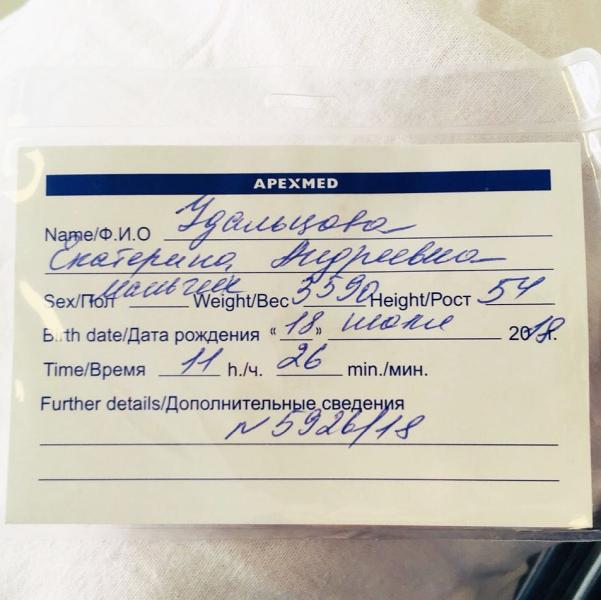 APEXMED
Name/Ф.И.О Удальцова
Екатерина Андреевна
Sex/Пол мальчик Weight/Вес 3590 Height/Рост 54
Birth date/Дата рождения «18» июля 2018г.
Time/Время 11 h./ч. 26 min./мин.
Further details/Дополнительные сведения
N 5926/18